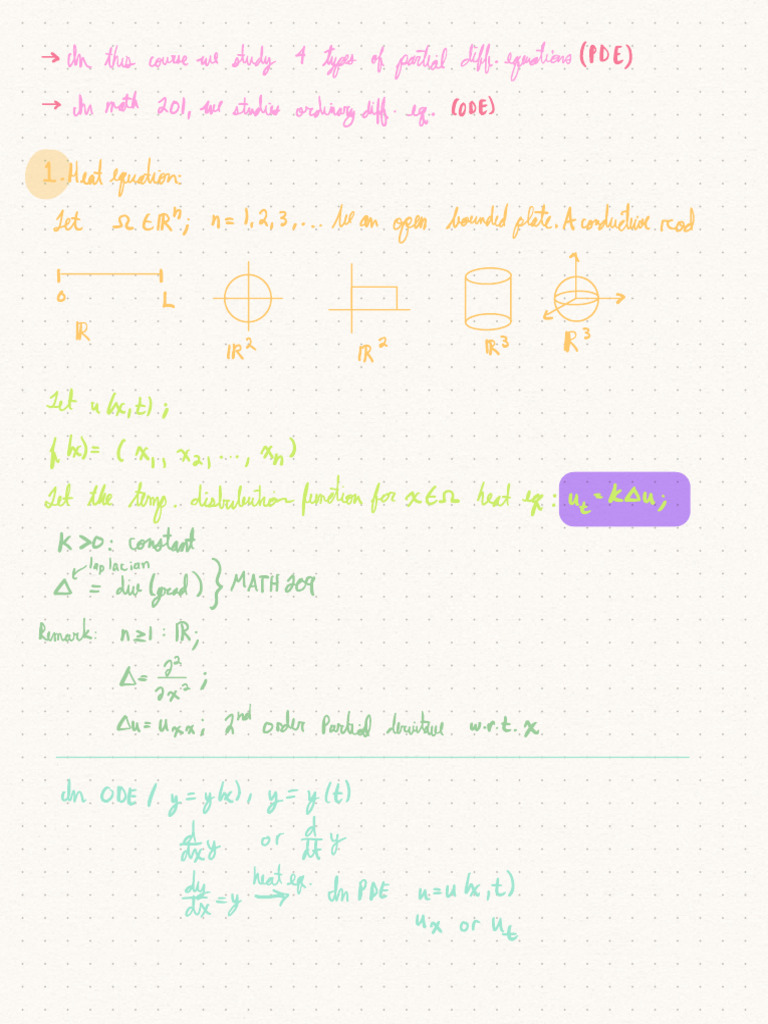 → In this course we study 4 types of partial diff. equations (PDE)
→ In math 201, we studies ordinary diff eq. (ODE)
1. Heat equation:
Let Ω ∈ ℝⁿ; n = 1, 2, 3, ... be an open bounded plate. A conductive rod
0 L
ℝ ℝ² ℝ² ℝ³ ℝ³
Let u(x,t);
(x) = (x₁, x₂, ..., xₙ)
Let the temp. distribution function for x ∈ Ω heat eq: uₜ = kΔu;
K > 0: constant
laplacian
Δ = div(grad) } MATH 209
Remark: n ≥ 1: ℝ;
Δ = ∂²/∂x²;
Δu = uₓₓ; 2nd order Partial derivitive w.r.t. x
In ODE / y = y(x), y = y(t)
d/dx y or d/dt y
dy/dx = y heat eq. → In PDE u = u(x,t)
uₓ or uₜ